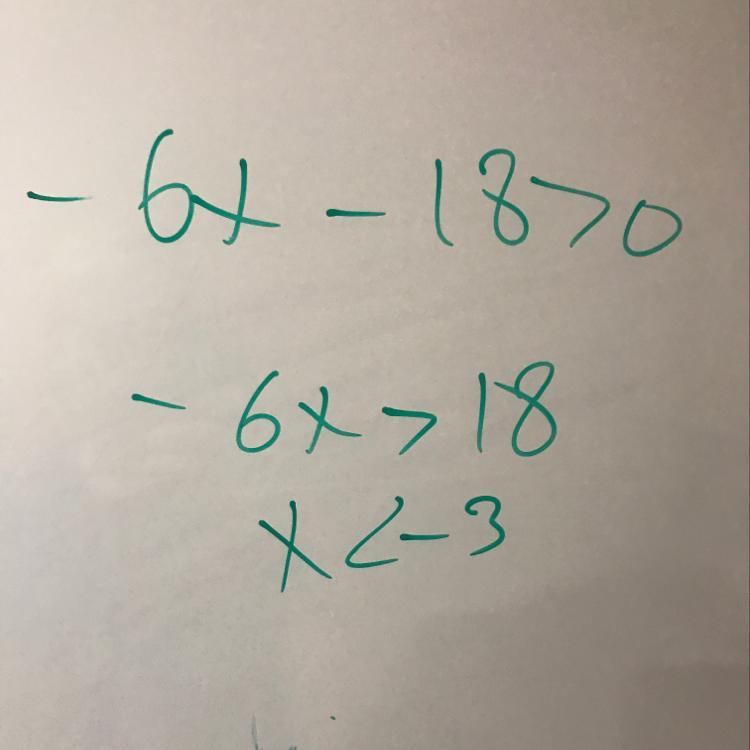 - 6x - 18 > 0
- 6x > 18
x < - 3